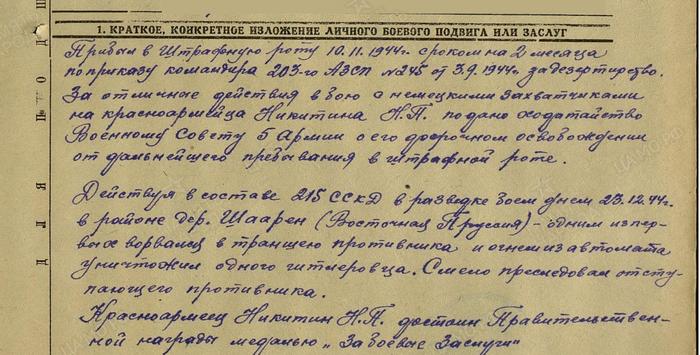 1. КРАТКОЕ, КОНКРЕТНОЕ ИЗЛОЖЕНИЕ ЛИЧНОГО БОЕВОГО ПОДВИГА ИЛИ ЗАСЛУГ
Прибыл в Штрафную роту 10.11.1944г. сроком на 2 месяца
по приказу командира 203-го АЗСП №245 от 3.9.1944г. за дезертирство.
За отличные действия в бою с немецкими захватчиками
на красноармейца Никитина Н.П. подано ходатайство
Военному Совету 5 Армии о его досрочном освобождении
от дальнейшего пребывания в штрафной роте.
Действуя в составе 215 ССКД в разведке боем днем 23.12.44г.
в районе дер. Шаарен (Восточная Пруссия) - одним из пер-
вых ворвался в траншею противника и огнем из автомата
уничтожил одного гитлеровца. Смело преследовал отсту-
пающего противника.
Красноармеец Никитин Н.П. достоин Правительствен-
ной награды медалью „За боевые Заслуги"
Д Л Я П О Д Ш